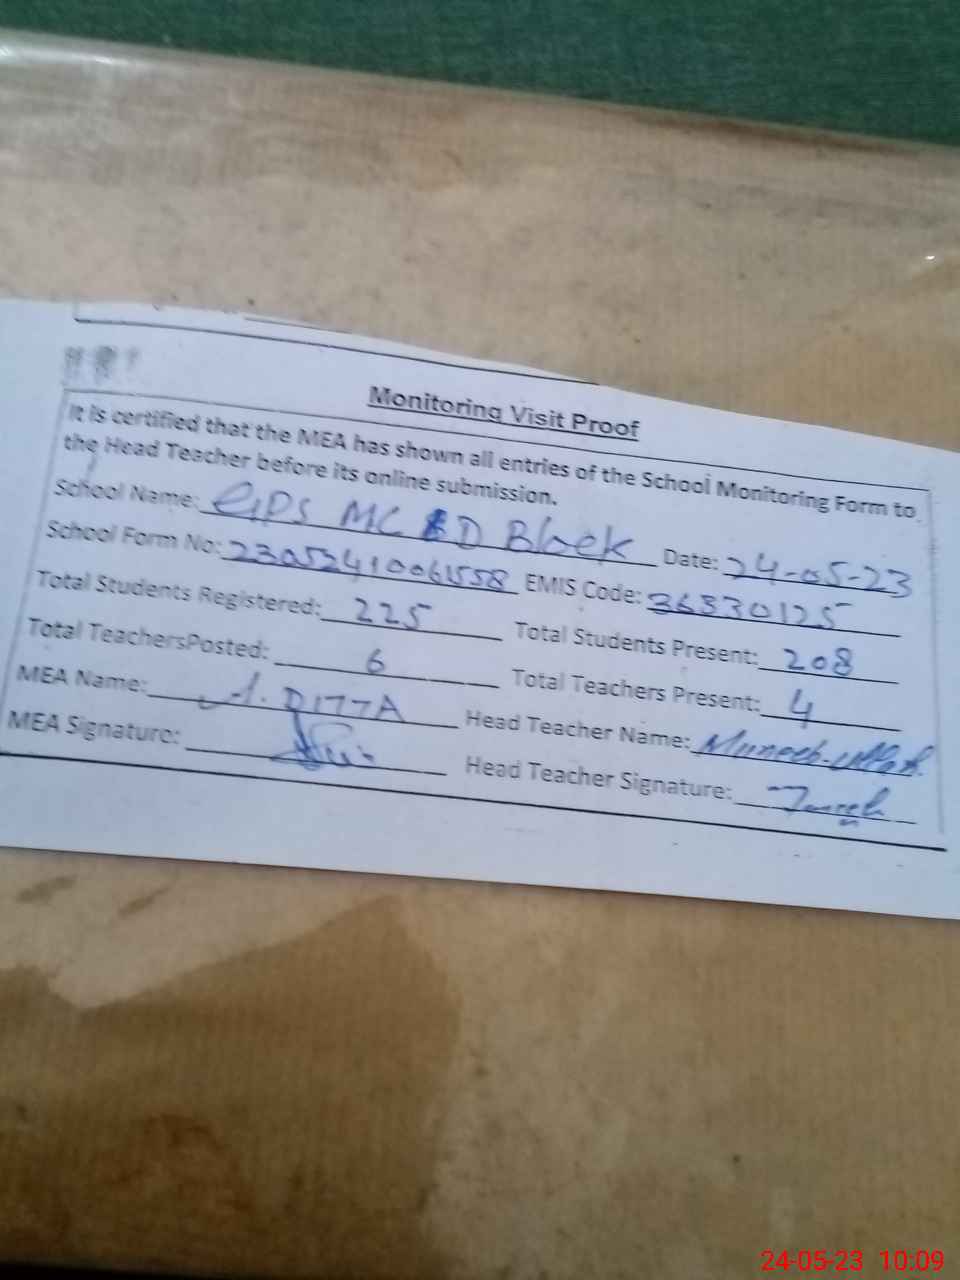 Monitoring Visit Proof
It is certified that the MEA has shown all entries of the School Monitoring Form to
the Head Teacher before its online submission.
School Name: GPS MC D Block Date: 24-05-23
School Form No: 23052410061558 EMIS Code: 36830125
Total Students Registered: 225 Total Students Present: 208
Total TeachersPosted: 6 Total Teachers Present: 4
MEA Name: A. DITTA Head Teacher Name: Muneeb-ullah
MEA Signature: Head Teacher Signature:
24-05-23 10:09